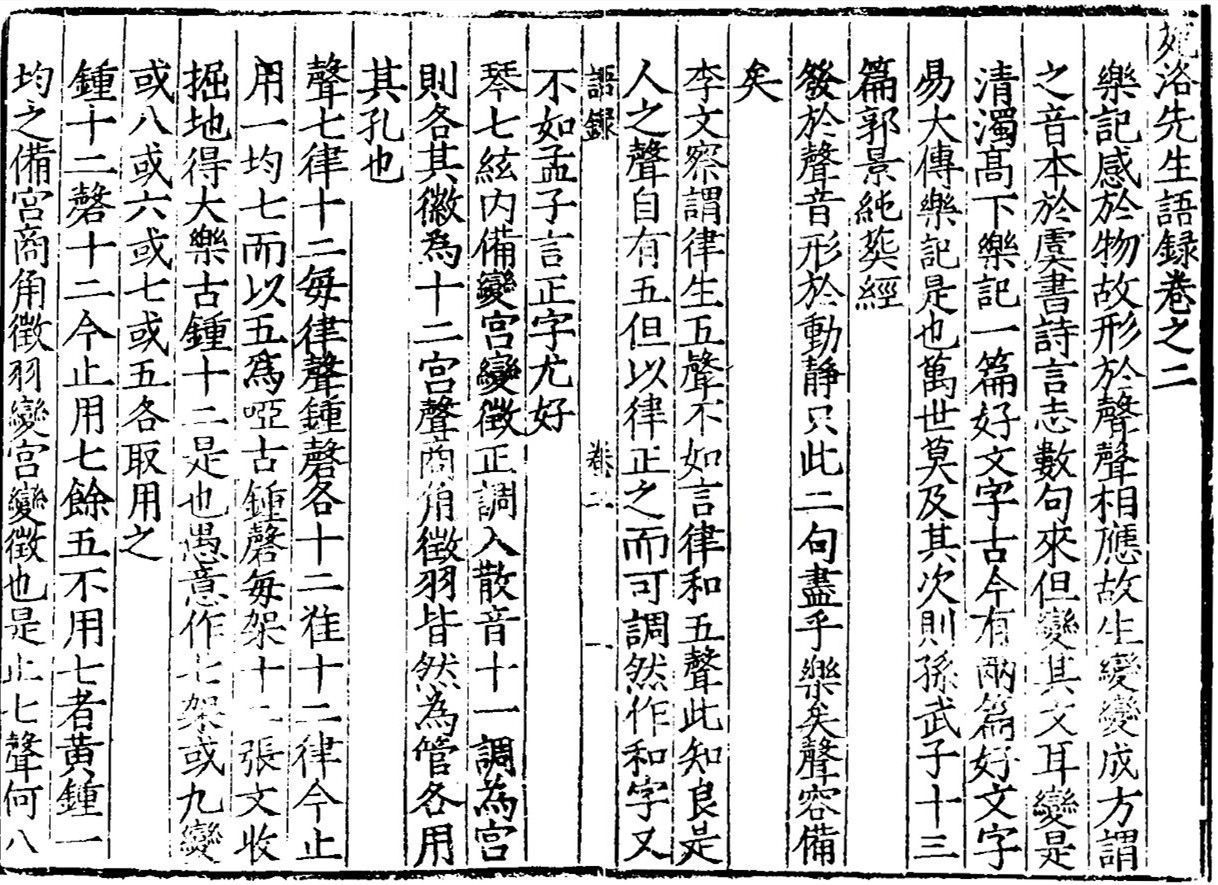 苑洛先生語録卷之二
樂記感於物故形於聲聲相應故生變變成方謂
之音本於虞書詩言志數句來但變其文耳變是
清濁髙下樂記一篇好文字古今有兩篇好文字
易大傳樂記是也萬世莫及其次則孫武子十三
篇郭景純葬經
發於聲音形於動靜只此二句盡乎樂矣聲容備
矣
李文察謂律生五聲不如言律和五聲此知良是
人之聲自有五但以律正之而可調然作和字又
語録 卷二 一
不如孟子言正字尤好
琴七絃内備變宫變徴正調入散音十一調為宫
則各其徽為十二宫聲商角徴羽皆然為管各用
其孔也
聲七律十二毎律聲鍾磬各十二准十二律今止
用一均七而以五爲啞古鍾磬毎架十二張文收
掘地得大樂古鍾十二是也愚意作七架或九變
或八或六或七或五各取用之
鍾十二磬十二今止用七餘五不用七者黄鍾一
均之備宫商角徴羽變宫變徴也是止七聲何八